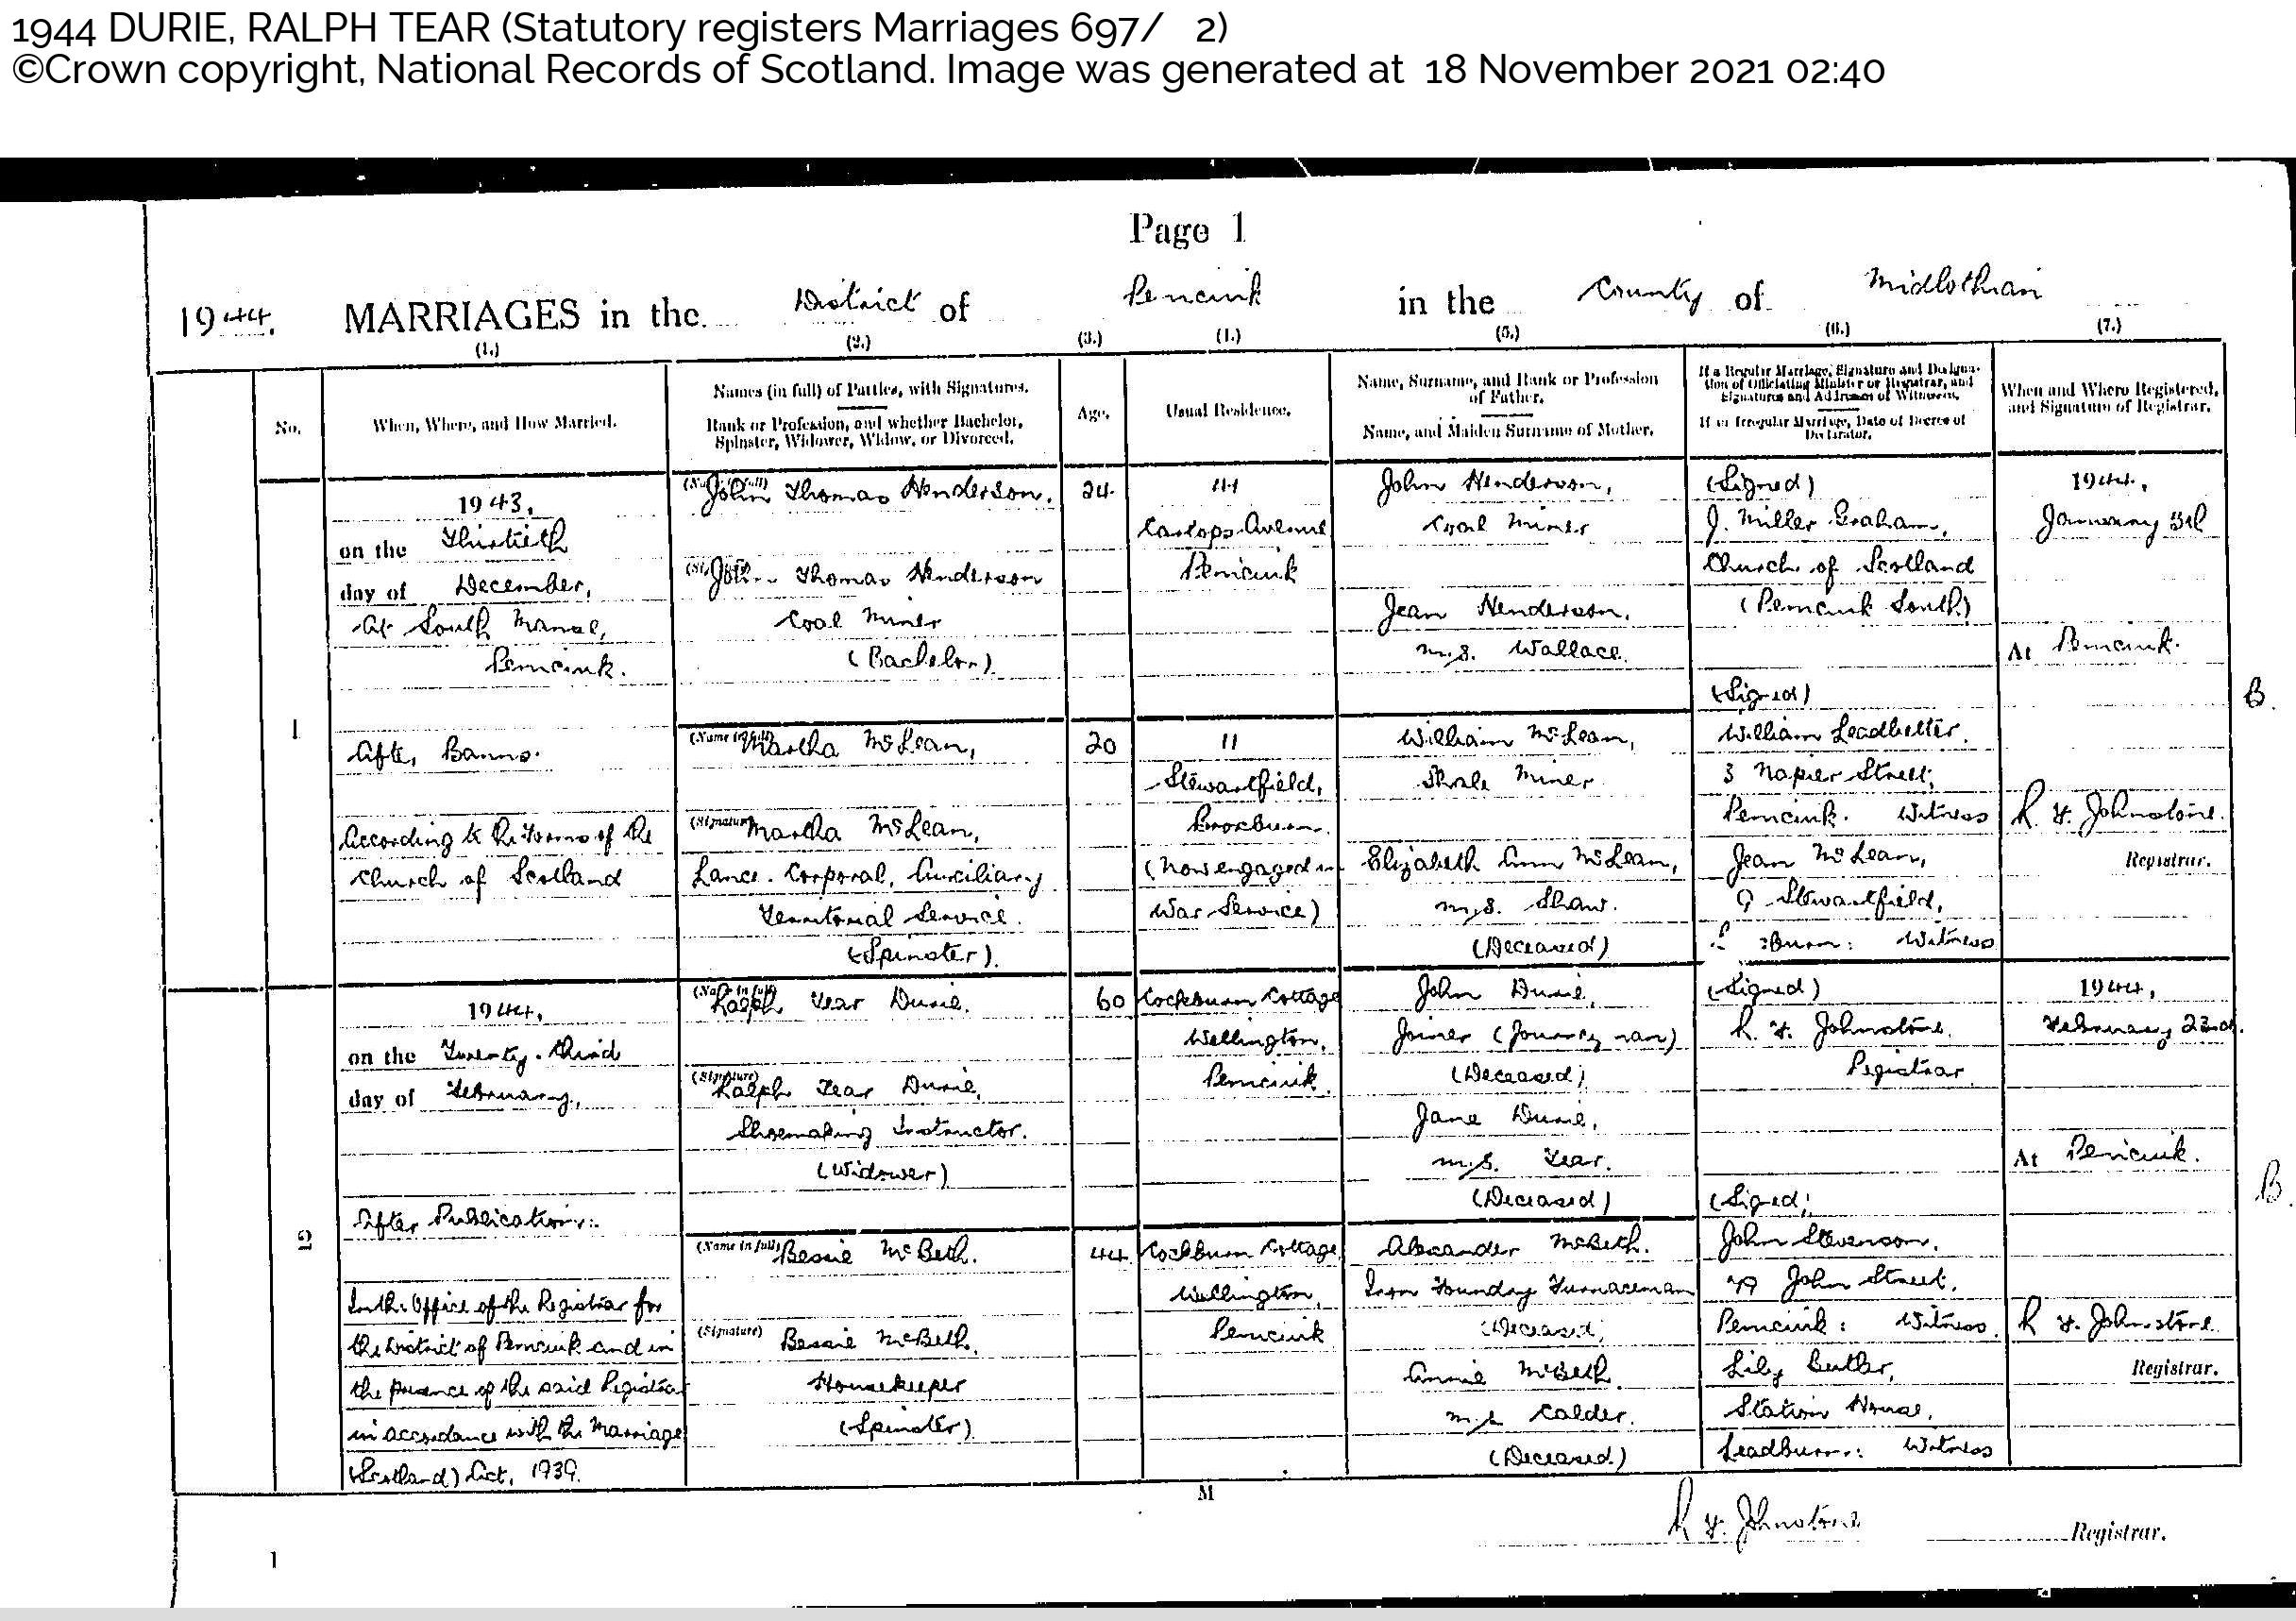 1944 DURIE, RALPH TEAR (Statutory registers Marriages 697/ 2)
©Crown copyright, National Records of Scotland. Image was generated at 18 November 2021 02:40
Page 1
1944. MARRIAGES in the District of Penicuik in the County of Midlothian
(1.) (2.) (3.) (4.) (5.) (6.) (7.)
No.
When, Where, and How Married.
Names (in full) of Parties, with Signatures.
Rank or Profession, and whether Bachelor,
Spinster, Widower, Widow, or Divorced.
Age.
Usual Residence.
Name, Surname, and Rank or Profession
of Father.
Name, and Maiden Surname of Mother.
If a Regular Marriage, Signature and Designa-
tion of Officiating Minister or Registrar, and
Signatures and Addresses of Witnesses.
If an Irregular Marriage, Date of Decree of
Declarator.
When and Where Registered,
and Signature of Registrar.
1
1943,
on the Thirtieth
day of December,
At South Manse,
Penicuik.
After Banns.
According to the Forms of the
Church of Scotland
(Name in full)
John Thomas Henderson.
(Signature)
John Thomas Henderson
Coal Miner
(Bachelor)
24
Carlops Avenue
Penicuik
John Henderson,
Coal Miner
Jean Henderson,
m.s. Wallace.
(Name in full)
Martha McLean,
(Signature)
Martha McLean,
Lance-Corporal, Auxiliary
Territorial Service.
(Spinster)
20
11
Stewartfield,
Broxburn.
(Now engaged in
War Service)
William McLean,
Shale Miner
Elizabeth Ann McLean,
m.s. Shaw.
(Deceased)
(Signed)
J. Miller Graham,
Church of Scotland
(Penicuik South)
(Signed)
William Leadbetter.
3 Napier Street,
Penicuik. Witness
Jean McLean,
9 Stewartfield,
Witness
1944,
January 5th
At Penicuik.
R. F. Johnstone.
Registrar.
B.
2
1944,
on the Twenty-third
day of February,
After Publication:
In the Office of the Registrar for
the District of Penicuik and in
the presence of the said Registrar
in accordance with the Marriage
(Scotland) Act, 1939.
(Name in full)
Ralph Tear Durie.
(Signature)
Ralph Tear Durie,
Shoemaking Instructor.
(Widower)
60
Cockburn Cottage
Wellington,
Penicuik.
John Durie,
Joiner (Journeyman)
(Deceased)
Jane Durie,
m.s. Tear.
(Deceased)
(Name in full)
Bessie McBeth.
(Signature)
Bessie McBeth,
Housekeeper
(Spinster)
44
Cockburn Cottage,
Wellington,
Penicuik
Alexander McBeth.
Iron Foundry Furnaceman
(Deceased)
Annie McBeth,
m.s. Calder.
(Deceased)
(Signed)
R. F. Johnstone.
Registrar
(Signed)
John Stevenson,
79 John Street,
Penicuik: Witness.
Lily Butler,
Station House,
Leadburn: Witness
1944,
February 23rd.
At Penicuik.
R. F. Johnstone
Registrar.
B.
M
R. F. Johnstone Registrar.
1